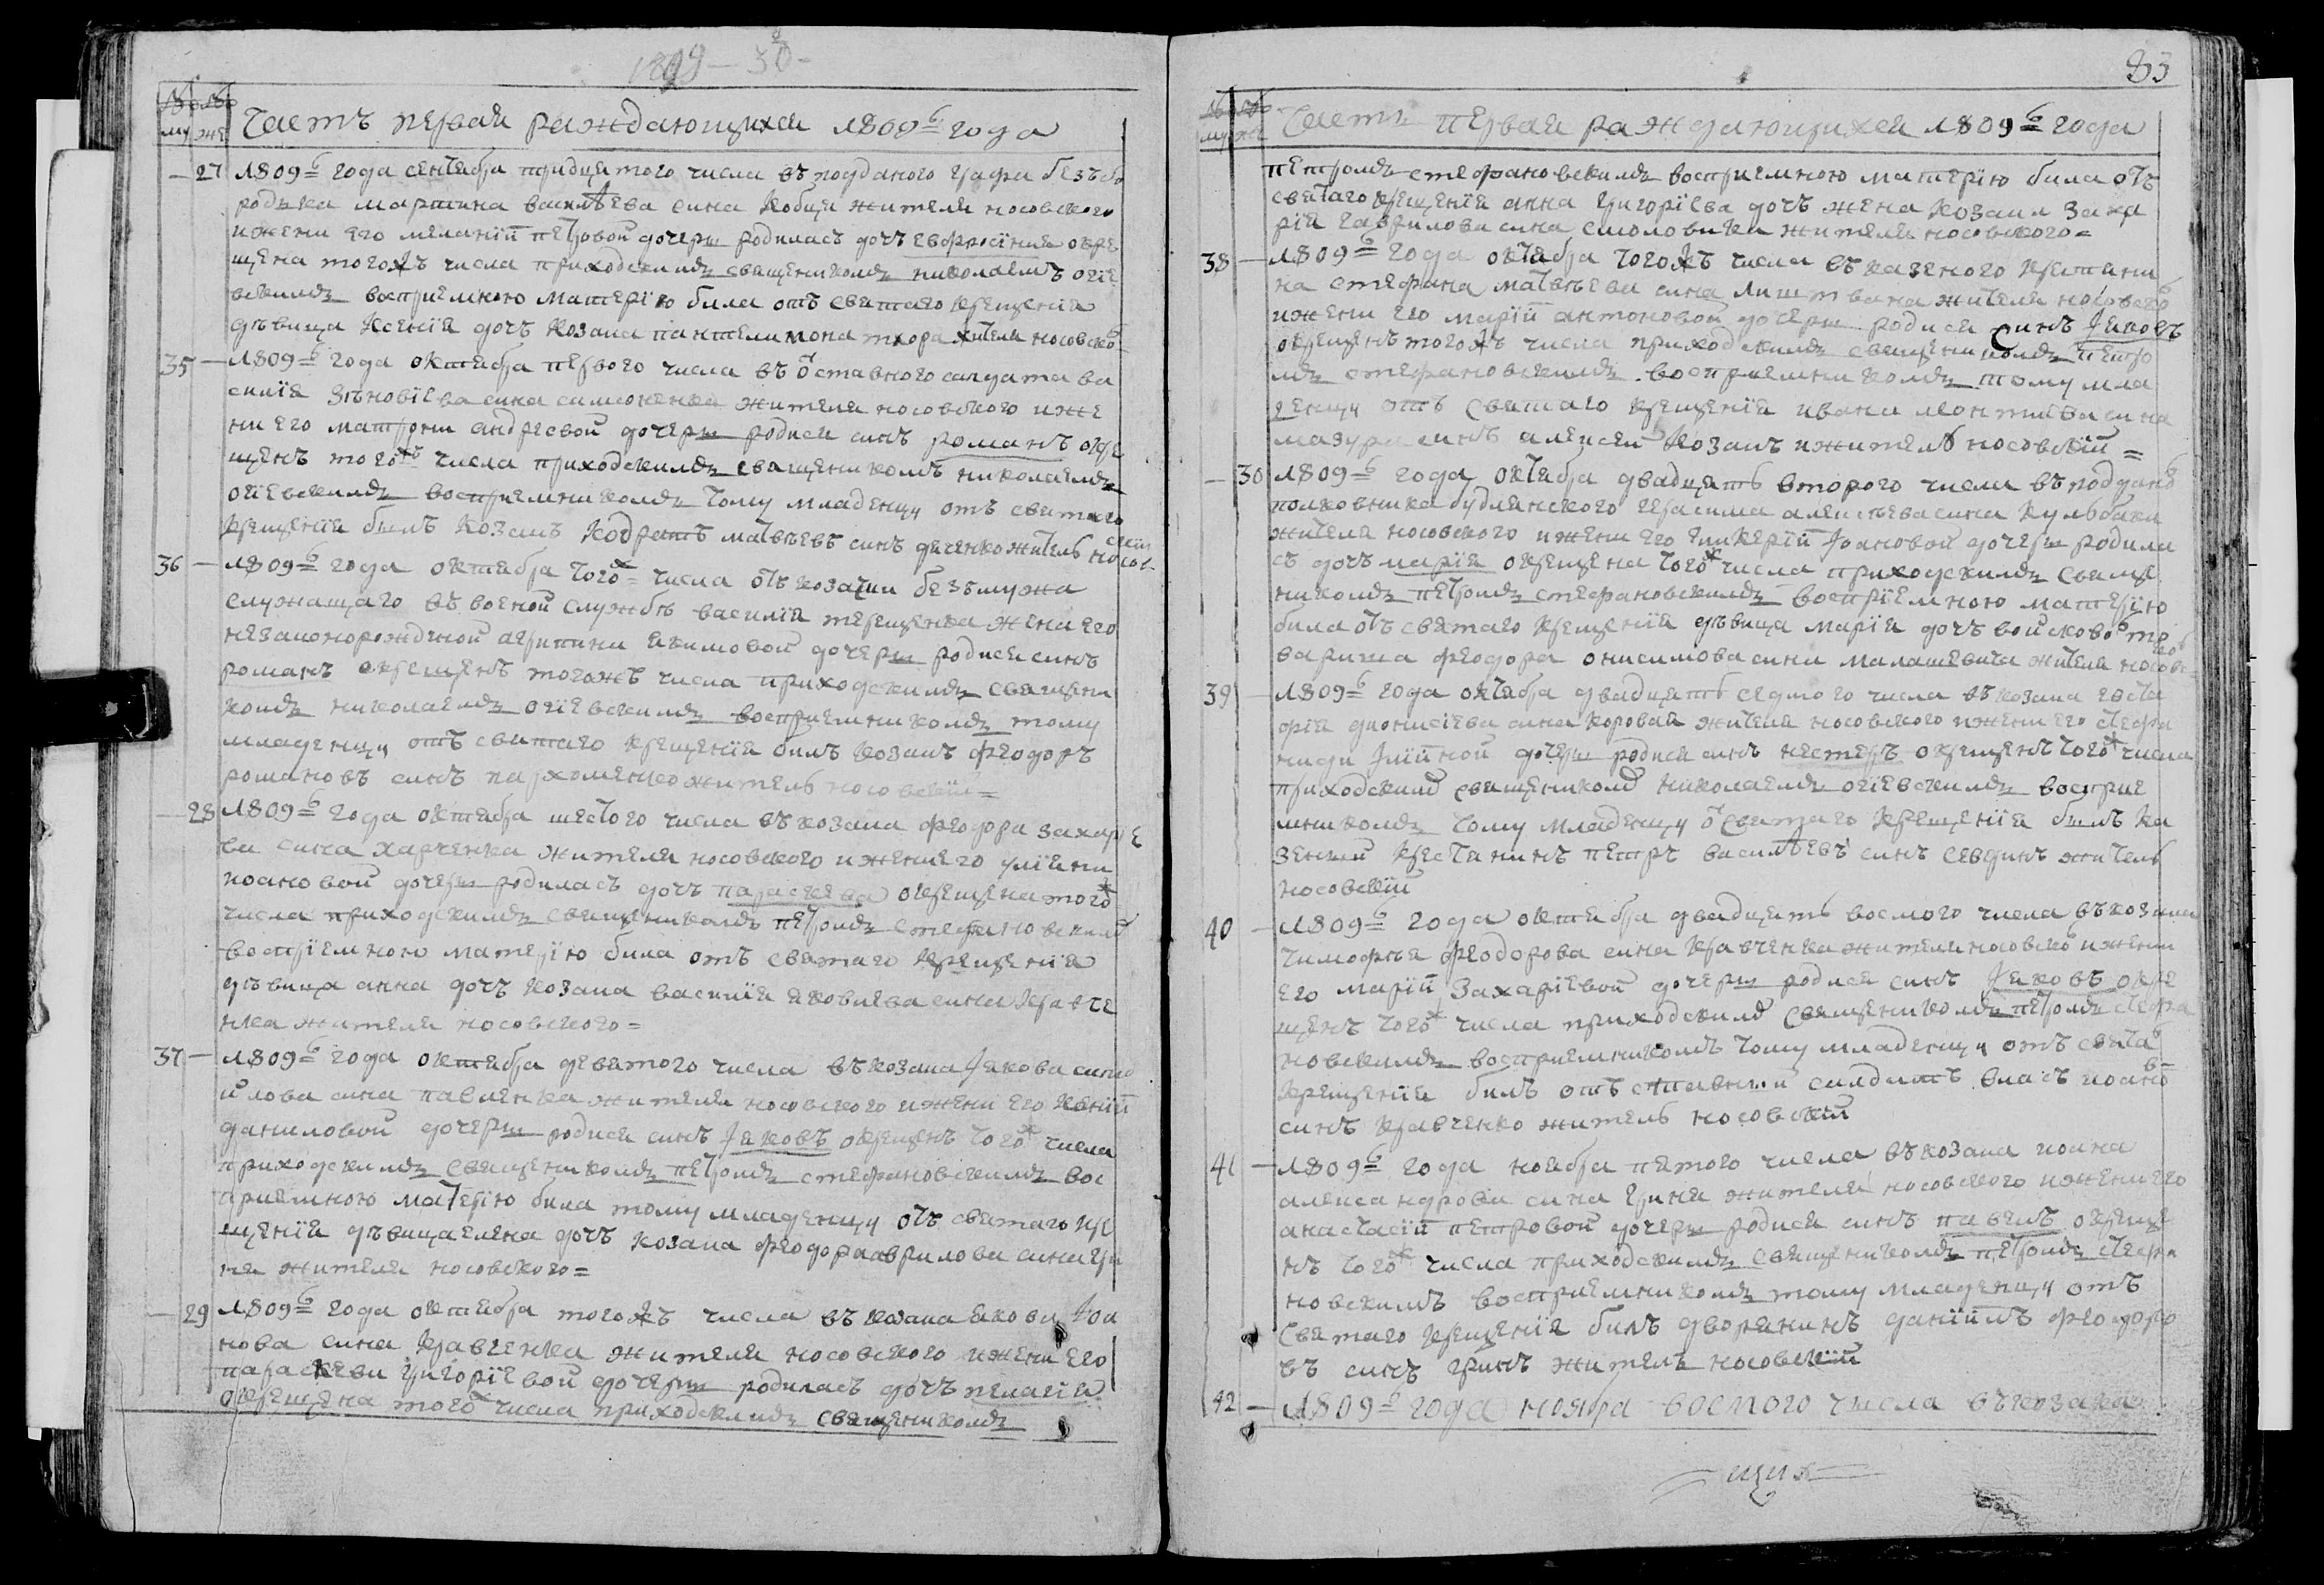 1809 — 30 —
№ №
му же Часть первая раждающихся 1809го года
— 27 1809го года сентября тридцятого числа въ подданого графа безъбо
родька мартина василѣева сина кобци жителя носовского
ижени его меланіи петровой дочери родилась дочъ евфросиния окре
щена тогожъ числа приходскимъ священикомъ николаемъ огіе
вскимъ восприемною материю била отъ святаго крещенія
дѣвица ксенія дочъ козака пантелимона тхора жителя носовско
35 — 1809го года октября первого числа въ отставного салдата ва
силія зѣновіева сина симоненка жителя носовского иже
ни его матрони андреевой дочери родися синъ романъ окре
щенъ тогожъ числа приходскимъ священикомъ николаемъ
огіевскимъ восприемникомъ тому младенцу отъ святаго
крещенія билъ козакъ кодратъ матвѣевъ синъ дяченко житель носовскій
36 — 1809го года октября того ж числа отъ козачки безъ мужа
служащаго въ военой службѣ василія терещенка жени его
незаконорожденой агрипини акимовой дочери родися синъ
романъ окрещенъ тогожъ числа приходскимъ священи
комъ николаемъ огіевскимъ восприемникомъ тому
младенцу отъ святаго крещенія билъ козакъ феодоръ
романовъ синъ пархоменко житель носовскій =
— 28 1809го года октября шестого числа въ козака феодора захаріе
ва сина харченка жителя носовского ижени его уліяни
иоановой дочери родилась дочъ параскева окрещена того ж
числа приходскимъ священикомъ петромъ стефановскимъ
восприемною материю била отъ святаго крещенія
дѣвица анна дочъ козака василія яковлева сина кравче
нка жителя носовского =
37 — 1809го года октября девятого числа въ козака Іакова само
йлова сина павленка жителя носовского ижени его ксеніи
даниловой дочери родися синъ Іаковъ окрещенъ того ж числа
приходскимъ священикомъ петромъ стефановскимъ вос
приемною материю била тому младенцу отъ святаго кре
щенія дѣвица елена дочъ козака феодора аврилова сина гри
ня жителя носовского =
— 29 1809го года октября тогожъ числа въ козака якова Іоа
нова сина кравченка жителя носовского ижени его
параскеви григоріевой дочери родилась дочъ пелагія
окрещена того ж числа приходскимъ священикомъ
83
№ №
му же Часть первая раждающихся 1809го года
петромъ стефановскимъ восприемною материю била отъ
святаго крещенія анна григоріева дочъ жена козака заха
рія гаврилова сина смоловика жителя носовского =
38 — 1809го года октября тогожъ числа въ казеного крестяни
на стефана матвѣева сина лиштвана жителя носовского
ижени его маріи антоновой дочери родися синъ Іаковъ
окрещенъ тогожъ числа приходскимъ священикомъ петро
мъ стефановскимъ восприемникомъ тому мла
денцу отъ святаго крещенія ивана леонтиева сина
мазура синъ алексей козакъ ижитель носовскій =
— 30 1809го года октября двадцять второго числа въ поддано
полковника будлянского герасима алексѣева сина кулбаки
жителя носовского ижени его гликеріи Іоановой дочери родила
съ дочъ марія окрещена того ж числа приходскимъ священ
никомъ петромъ стефановскимъ восприемною материю
била отъ святаго крещенія дѣвица марія дочъ войсково то
вариша феодора онисимова сина малашевича жителя носовс
39 — 1809го года октября двадцять седмого числа въ козака евста
фія дионисіева сина коровая жителя носовского ижени его стефа
ниди Іліиной дочери родися синъ нестеръ окрещенъ того ж числа
приходскимъ священикомъ николаемъ огіевскимъ восприе
мникомъ тому младенцу о святаго крещенія билъ ка
зенний крестянинъ петръ василѣевъ синъ севдинъ житель
носовскій
40 — 1809го года октября двадцять восмого числа въ козака
тимофея феодорова сина кравченка жителя носовско ижени
его маріи захаріевой дочери родися синъ Іаковъ окре
щенъ того ж числа приходскимъ священикомъ петромъ стефа
новскимъ восприемникомъ тому младенцу отъ свята
крещенія билъ отъставний салдатъ власъ иоано въ
синъ кравченко житель носовскій
41 — 1809го года ноября пятого числа въ козака иоана
александрова сина гриня жителя носовского ижени его
анастасіи петровой дочери родися синъ павелъ окреще
нъ того ж числа приходскимъ священикомъ петромъ стефа
новскимъ восприемникомъ тому младенцу отъ
святаго крещенія билъ дворянинъ даніилъ феодоро
въ синъ гринъ житель носовскій
42 — 1809го года ноября восмого числа въ козака